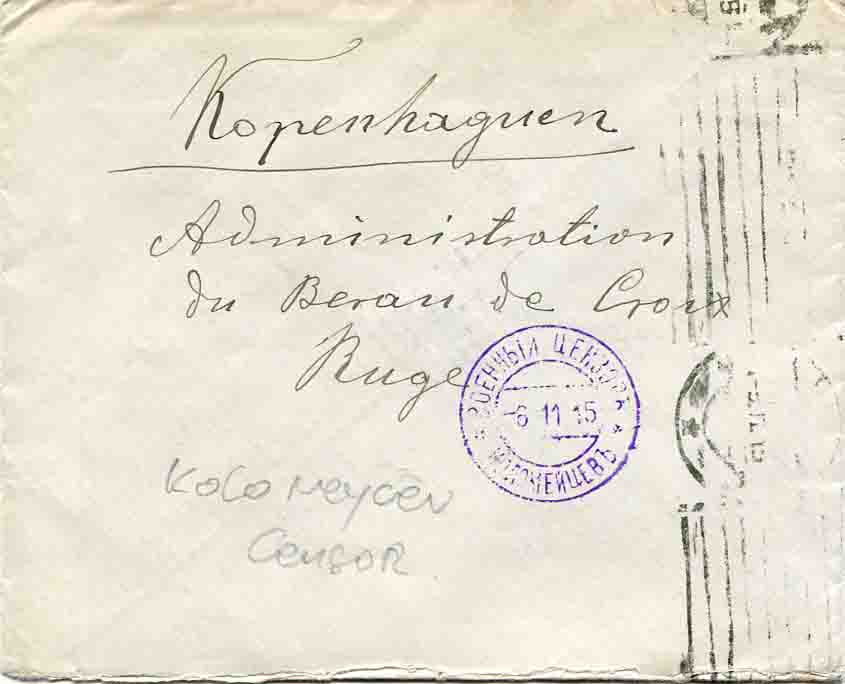 Kopenhaguen
Administration
du Berau de Croix
Ruge
ВОЕННЫЙ ЦЕНЗОРЪ
-6 11 15
Kolomeycev
Censor